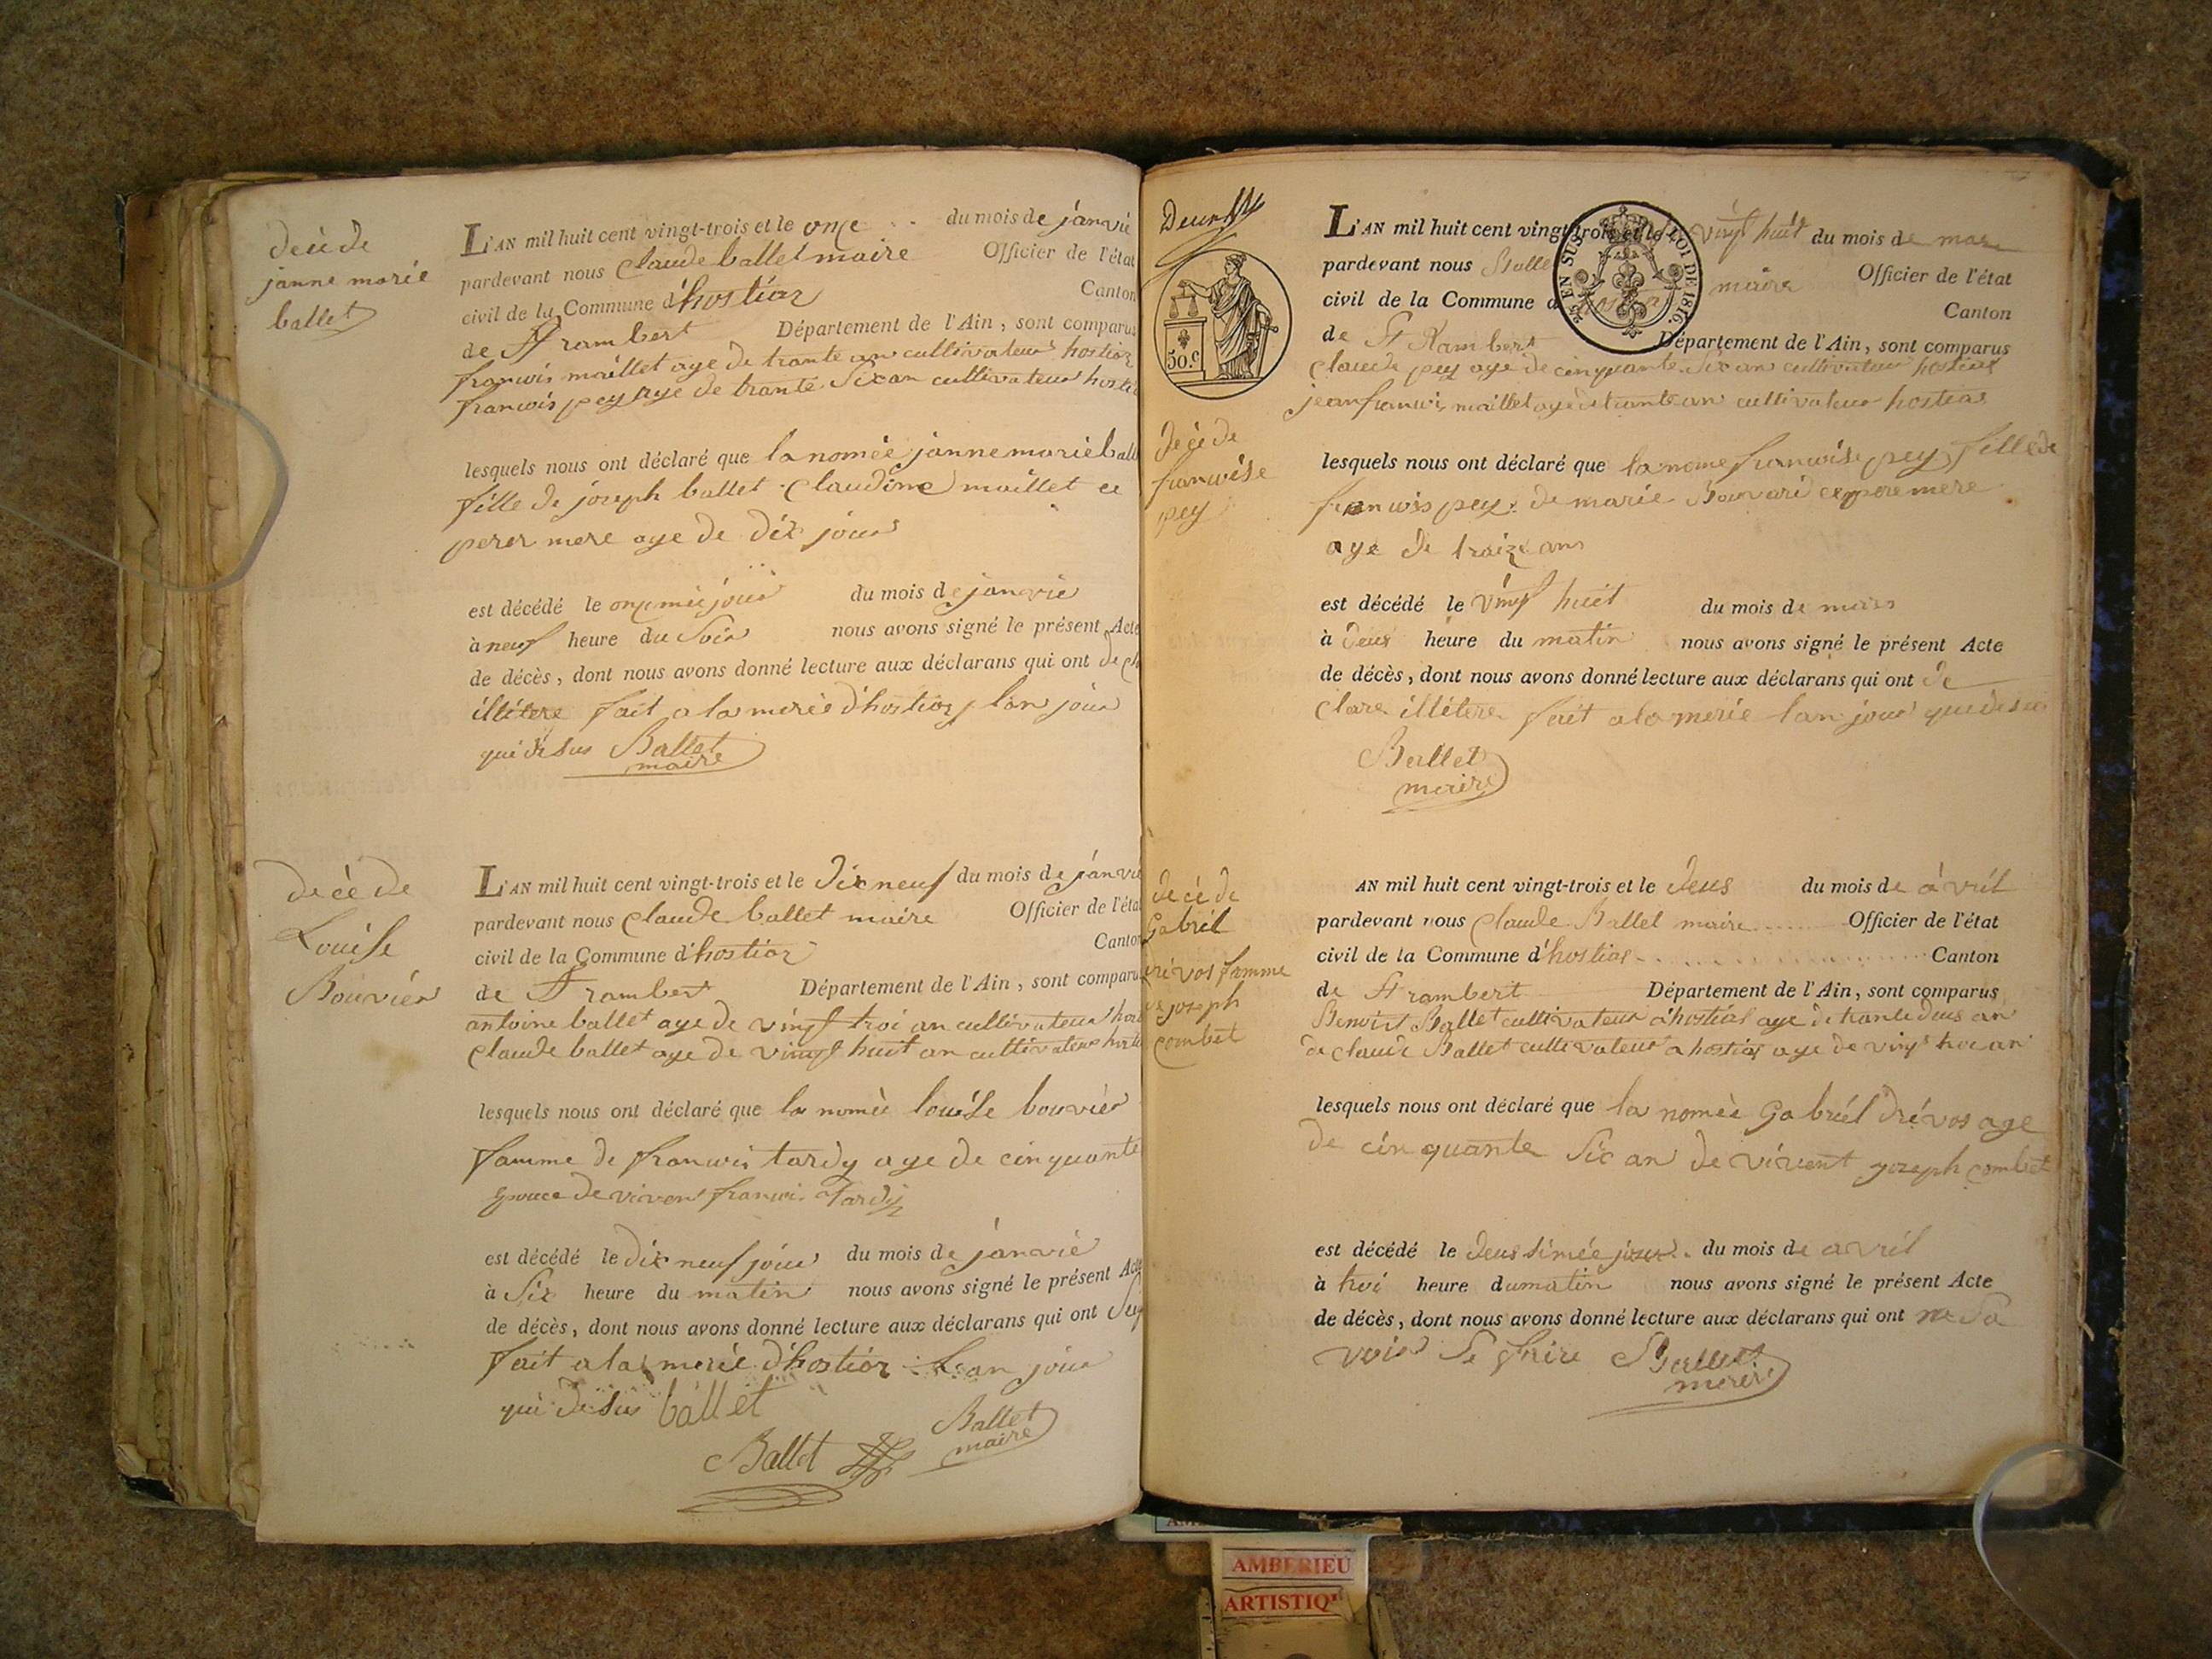 decède
janne marie
ballet
L'AN mil huit cent vingt-trois et le onze du mois de janvié
pardevant nous Claude ballet maire Officier de l'état
civil de la Commune d'hostiaz Canton
de St rambert Département de l'Ain, sont comparus
francois maillet age de trante an cultivateur hostiaz
francois pey age de trante Six an cultivateur hostia
lesquels nous ont déclaré que la nomée janne marie ball
fille de joseph ballet Claudine maillet ce
perer mere age de dix jours
est décédé le onzmiè jour du mois de janvié
à neuf heure du Soir nous avons signé le présent Acte
de décès, dont nous avons donné lecture aux déclarans qui ont de cla
illitere fait a la merie d'hostiaz lan jour
qui desus Ballet
maire
decède
Louise
Bouvier
L'AN mil huit cent vingt-trois et le dix neuf du mois de janvié
pardevant nous Claude ballet maire Officier de l'état
civil de la Commune d'hostiaz Canton
de St rambert Département de l'Ain, sont comparu
antoine ballet age de vingt troi an cultivateur host
Claude ballet age de vingt huit an cultivateur hostia
lesquels nous ont déclaré que la nomèe louise bouvier
famme de francois tardy age de cinquante
epouce de vivent francois tardy
est décédé le dix neuf jour du mois de janvié
à Six heure du matin nous avons signé le présent Acte
de décès, dont nous avons donné lecture aux déclarans qui ont
fait a la merie d'hostiaz Lan jour
qui desus ballet
Ballet
maire
Ballet
50.c
EN SUS LOI DE 1816
decède
francoise
pey
L'AN mil huit cent vingt-trois et le vingt huit du mois de mars
pardevant nous Balle maire Officier de l'état
civil de la Commune d Canton
de St Rambert Département de l'Ain, sont comparus
Claude pey age de cinquante Six an cultivateur hostias
jean francois maillet age de trante an cultivateur hostias
lesquels nous ont déclaré que la nome francoise pey fille de
francois pey de marie Bouvard ce pere mere
age de traize ans
est décédé le vingt huit du mois de mars
à deus heure du matin nous avons signé le présent Acte
de décès, dont nous avons donné lecture aux déclarans qui ont de
clare illitere fait a la merie lan jour que desus
Ballet
maire
decède
Gabriel
drevos famme
de joseph
combet
AN mil huit cent vingt-trois et le deus du mois de avril
pardevant nous Claude Ballet maire Officier de l'état
civil de la Commune d'hostias Canton
de St rambert Département de l'Ain, sont comparus
Benoist Ballet cultivateur a hostias age de trante deus an
de Claude Ballet cultivateur a hostias age de vingt an
lesquels nous ont déclaré que la nomèe Gabriel drévos age
de cinquante Six an de vivent joseph combet
est décédé le deussimée jour du mois de avril
à troi heure du matin nous avons signé le présent Acte
de décès, dont nous avons donné lecture aux déclarans qui ont ne Sa
voir Se frire Ballet
merer
AMBERIEU
ARTISTIQ